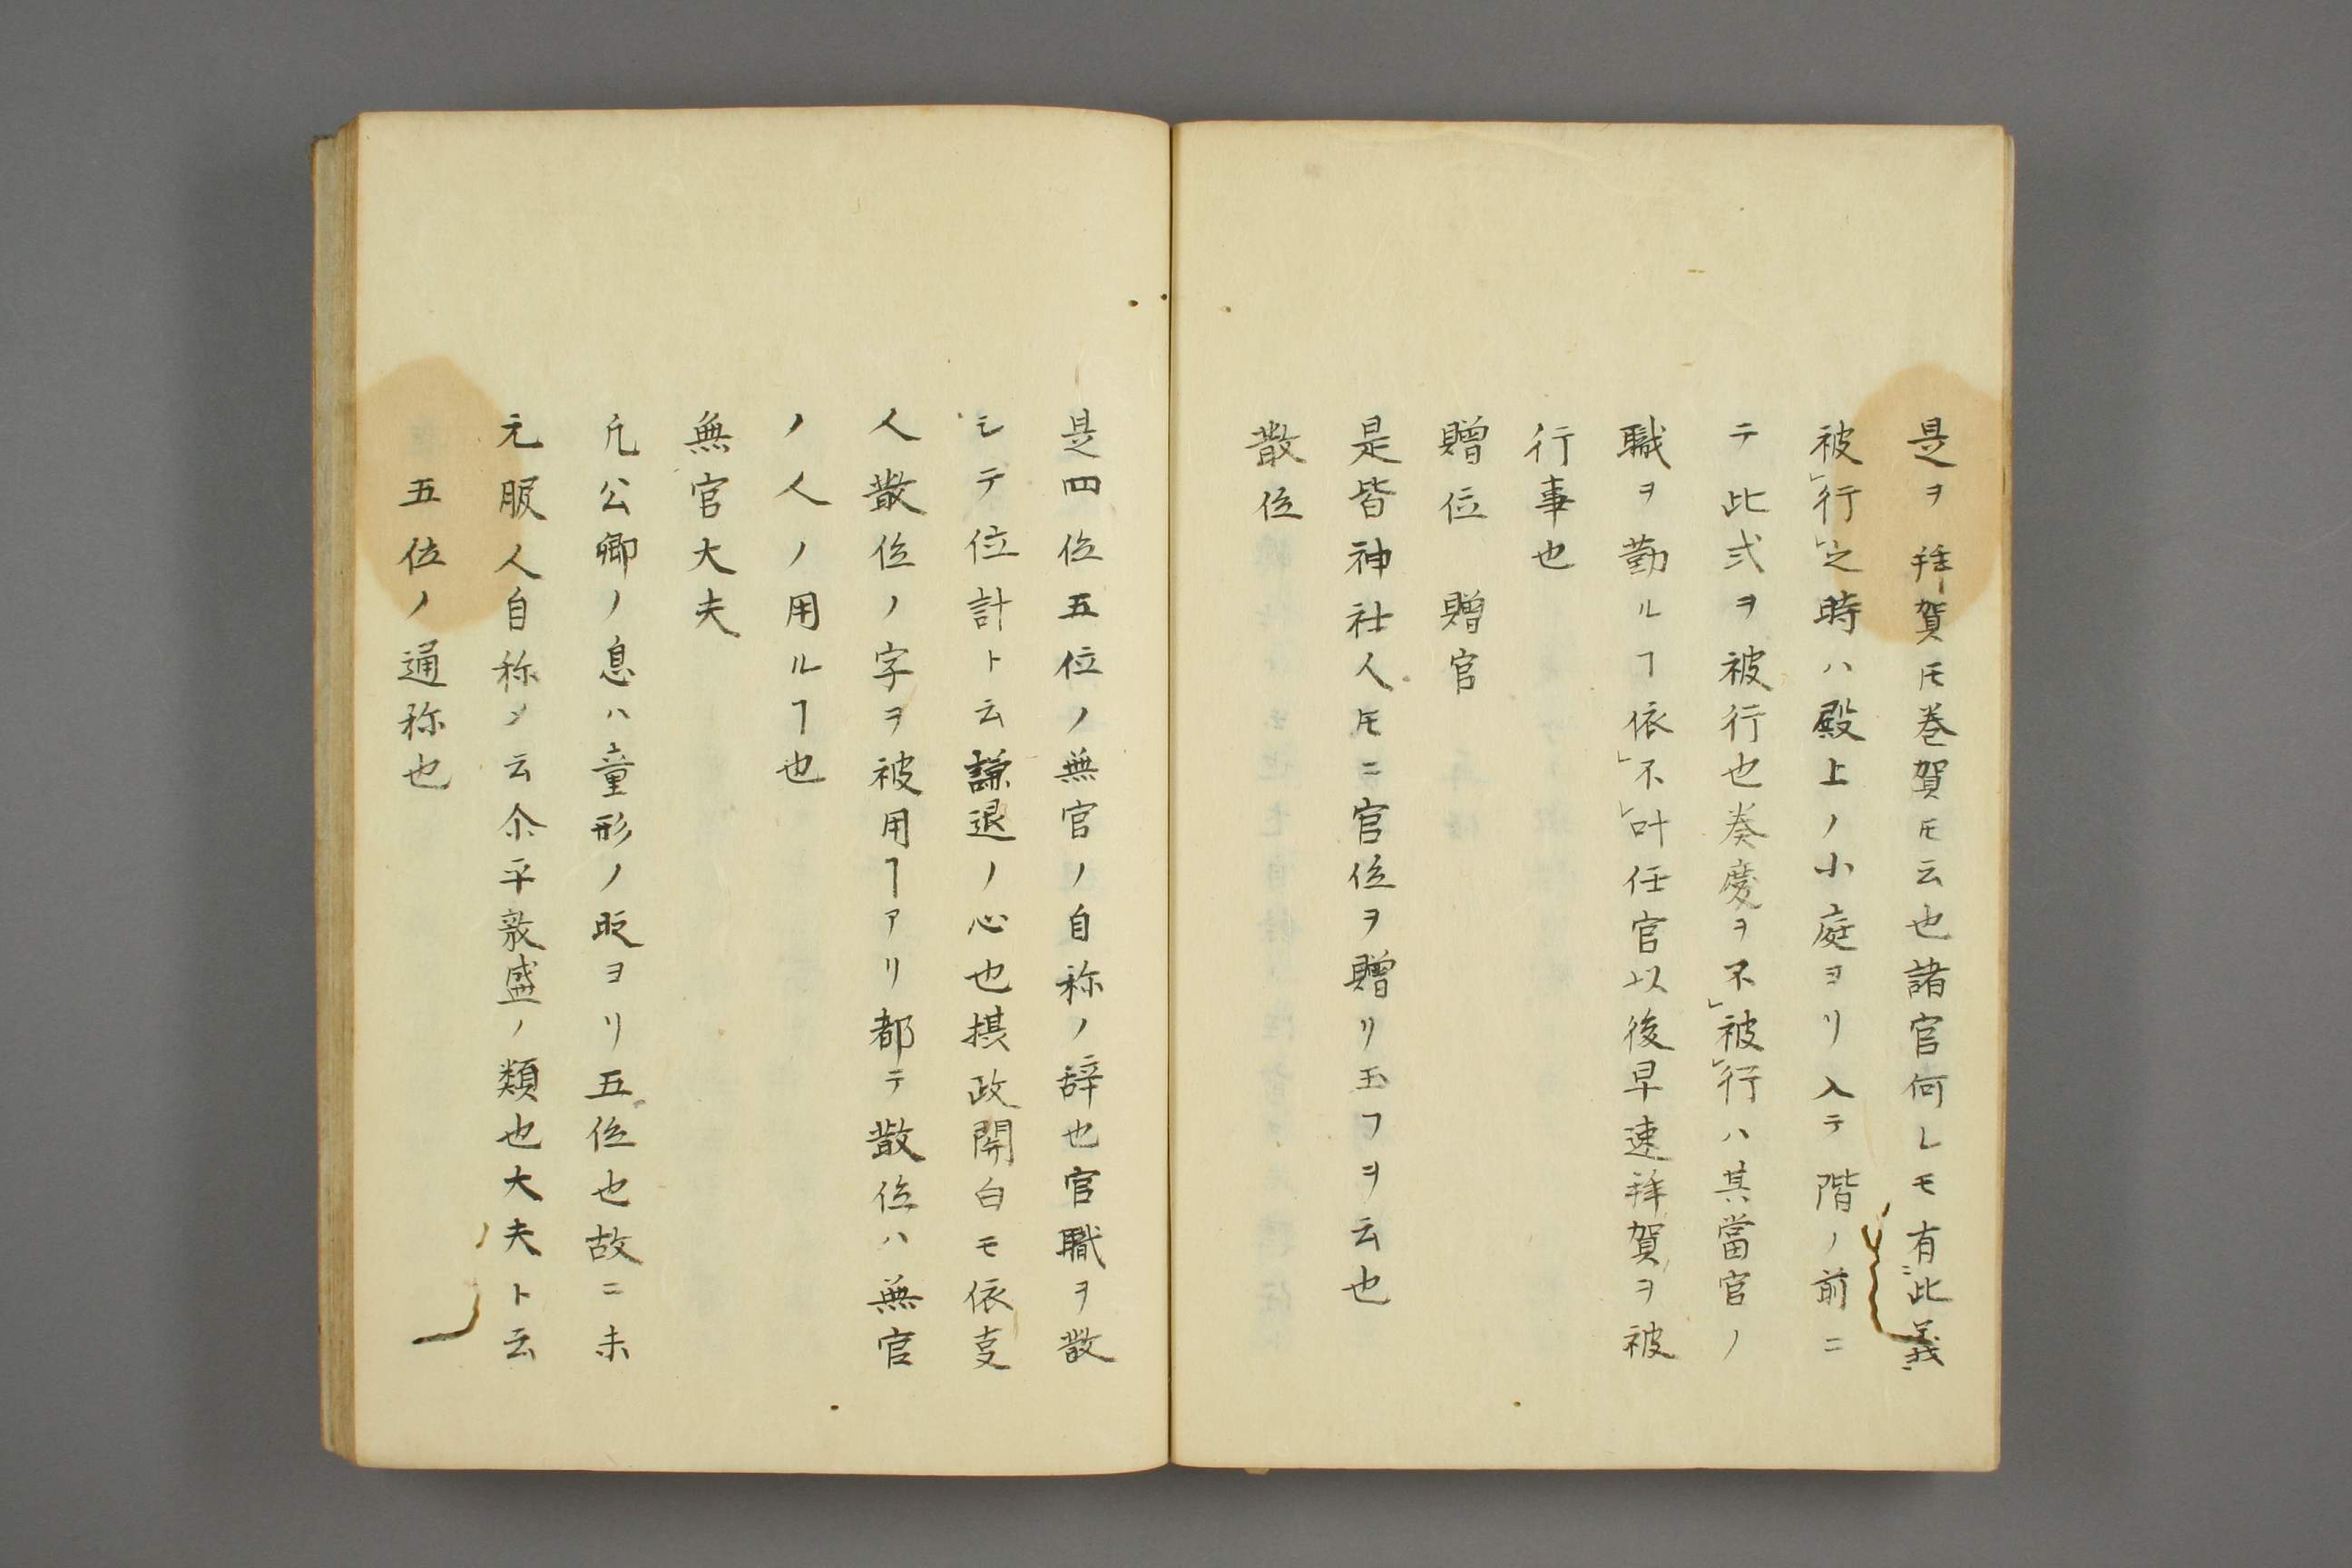 是ヲ拝賀ㇳモ巻賀ㇳモ云也諸官何レモ有此義
被行之時ハ殿上ノ小庭ヨリ入テ階ノ前ニ
テ此式ヲ被行也奏慶ヲ不被行ハ其當官ノ
職ヲ勤ルヿ依不叶任官以後早速拝賀ヲ被
行事也
贈位 贈官
是皆神社人ㇳモニ官位ヲ贈リ玉フヲ云也
散位
是四位五位ノ無官ノ自称ノ辞也官職ヲ散
シテ位計ト云謙退ノ心也摂政関白モ依支
人散位ノ字ヲ被用ヿアリ都テ散位ハ無官
ノ人ノ用ルヿ也
無官大夫
凡公卿ノ息ハ童形ノ時ヨリ五位也故ニ未
元服人自称メ云尒平敦盛ノ類也大夫ト云
五位ノ通称也